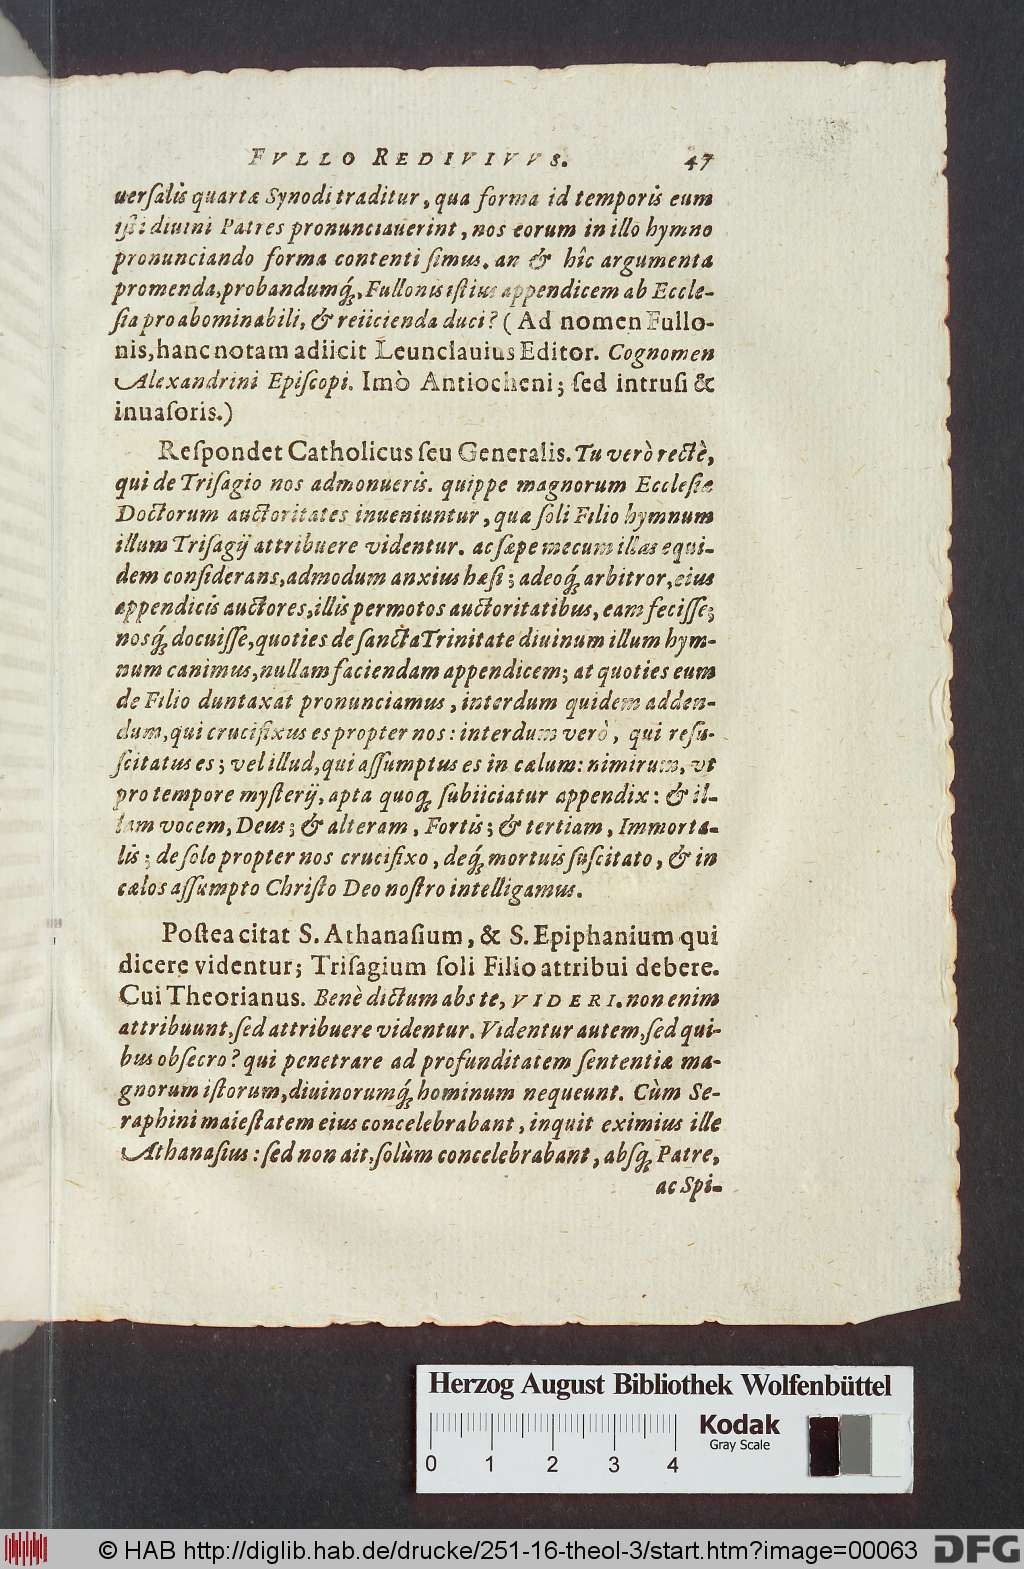 FVLLO REDIVIVVS. 47
uerſalis quartæ Synodi traditur, qua forma id temporis eum
iſti diuini Patres pronunciauerint, nos eorum in illo hymno
pronunciando forma contenti ſimus. an & hîc argumenta
promenda, probandumq́;, Fullonis iſtius appendicem ab Eccle-
ſia pro abominabili, & reiicienda duci? (Ad nomen Fullo-
nis, hanc notam adiicit Leunclauius Editor. Cognomen
Alexandrini Epiſcopi. Imò Antiocheni; ſed intruſi &
inuaſoris.)
Reſpondet Catholicus ſeu Generalis. Tu verò rectè,
qui de Triſagio nos admonueris. quippe magnorum Eccleſiæ
Doctorum auctoritates inueniuntur, quæ ſoli Filio hymnum
illum Triſagij attribuere videntur. ac ſæpe mecum illas equi-
dem conſiderans, admodum anxius hæſi; adeoq́; arbitror, eius
appendicis auctores, illis permotos auctoritatibus, eam feciſſe;
nosq́; docuiſſe, quoties de ſancta Trinitate diuinum illum hym-
num canimus, nullam faciendam appendicem; at quoties eum
de Filio duntaxat pronunciamus, interdum quidem adden-
dum, qui crucifixus es propter nos: interdum verò, qui reſu-
ſcitatus es; vel illud, qui aſſumptus es in cælum: nimirum, vt
pro tempore myſterij, apta quoq; ſubiiciatur appendix: & il-
lam vocem, Deus; & alteram, Fortis; & tertiam, Immorta-
lis; de ſolo propter nos crucifixo, deq́; mortuis ſuſcitato, & in
cælos aſſumpto Chriſto Deo noſtro intelligamus.
Poſtea citat S. Athanaſium, & S. Epiphanium qui
dicere videntur; Triſagium ſoli Filio attribui debere.
Cui Theorianus. Benè dictum abs te, VIDERI. non enim
attribuunt, ſed attribuere videntur. Videntur autem, ſed qui-
bus obſecro? qui penetrare ad profunditatem ſententiæ ma-
gnorum iſtorum, diuinorumq́; hominum nequeunt. Cùm Se-
raphini maieſtatem eius concelebrabant, inquit eximius ille
Athanaſius: ſed non ait, ſolùm concelebrabant, abſq; Patre,
ac Spi-
Herzog August Bibliothek Wolfenbüttel
Kodak
Gray Scale
0 1 2 3 4
© HAB http://diglib.hab.de/drucke/251-16-theol-3/start.htm?image=00063
DFG